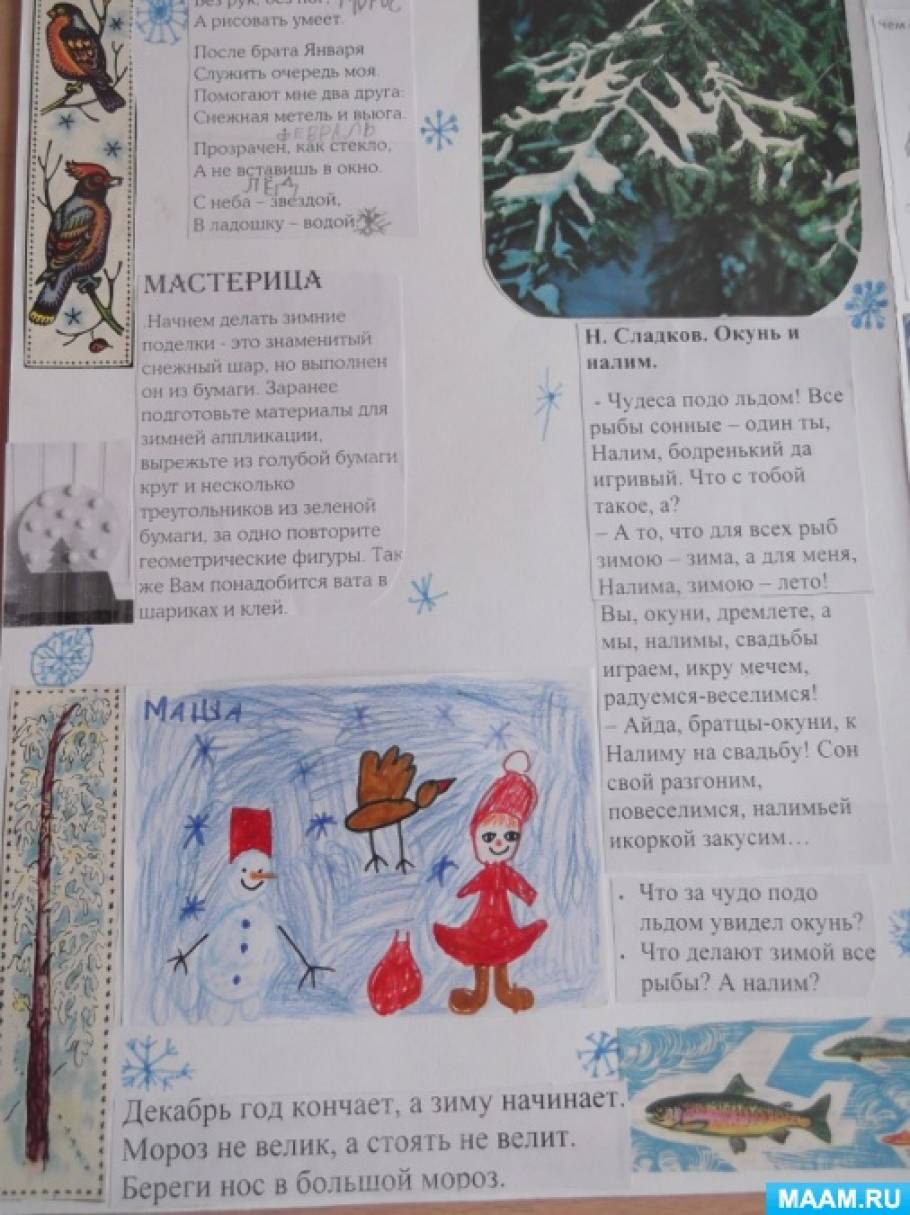 Без рук, без ног,
Мороз
А рисовать умеет.
После брата Января
Служить очередь моя.
Помогают мне два друга:
Снежная метель и вьюга.
ФЕВРАЛЬ
Прозрачен, как стекло,
А не вставишь в окно.
ЛЁД
С неба – звездой,
В ладошку – водой.
МАСТЕРИЦА
Начнем делать зимние
поделки - это знаменитый
снежный шар, но выполнен
он из бумаги. Заранее
подготовьте материалы для
зимней аппликации,
вырежьте из голубой бумаги
круг и несколько
треугольников из зеленой
бумаги, за одно повторите
геометрические фигуры. Так
же Вам понадобится вата в
шариках и клей.
чем
Н. Сладков. Окунь и
налим.
- Чудеса подо льдом! Все
рыбы сонные – один ты,
Налим, бодренький да
игривый. Что с тобой
такое, а?
– А то, что для всех рыб
зимою – зима, а для меня,
Налима, зимою – лето!
Вы, окуни, дремлете, а
мы, налимы, свадьбы
играем, икру мечем,
радуемся-веселимся!
– Айда, братцы-окуни, к
Налиму на свадьбу! Сон
свой разгоним,
повеселимся, налимьей
икоркой закусим…
• Что за чудо подо
льдом увидел окунь?
• Что делают зимой все
рыбы? А налим?
МАША
Декабрь год кончает, а зиму начинает.
Мороз не велик, а стоять не велит.
Береги нос в большой мороз.
MAAM.RU